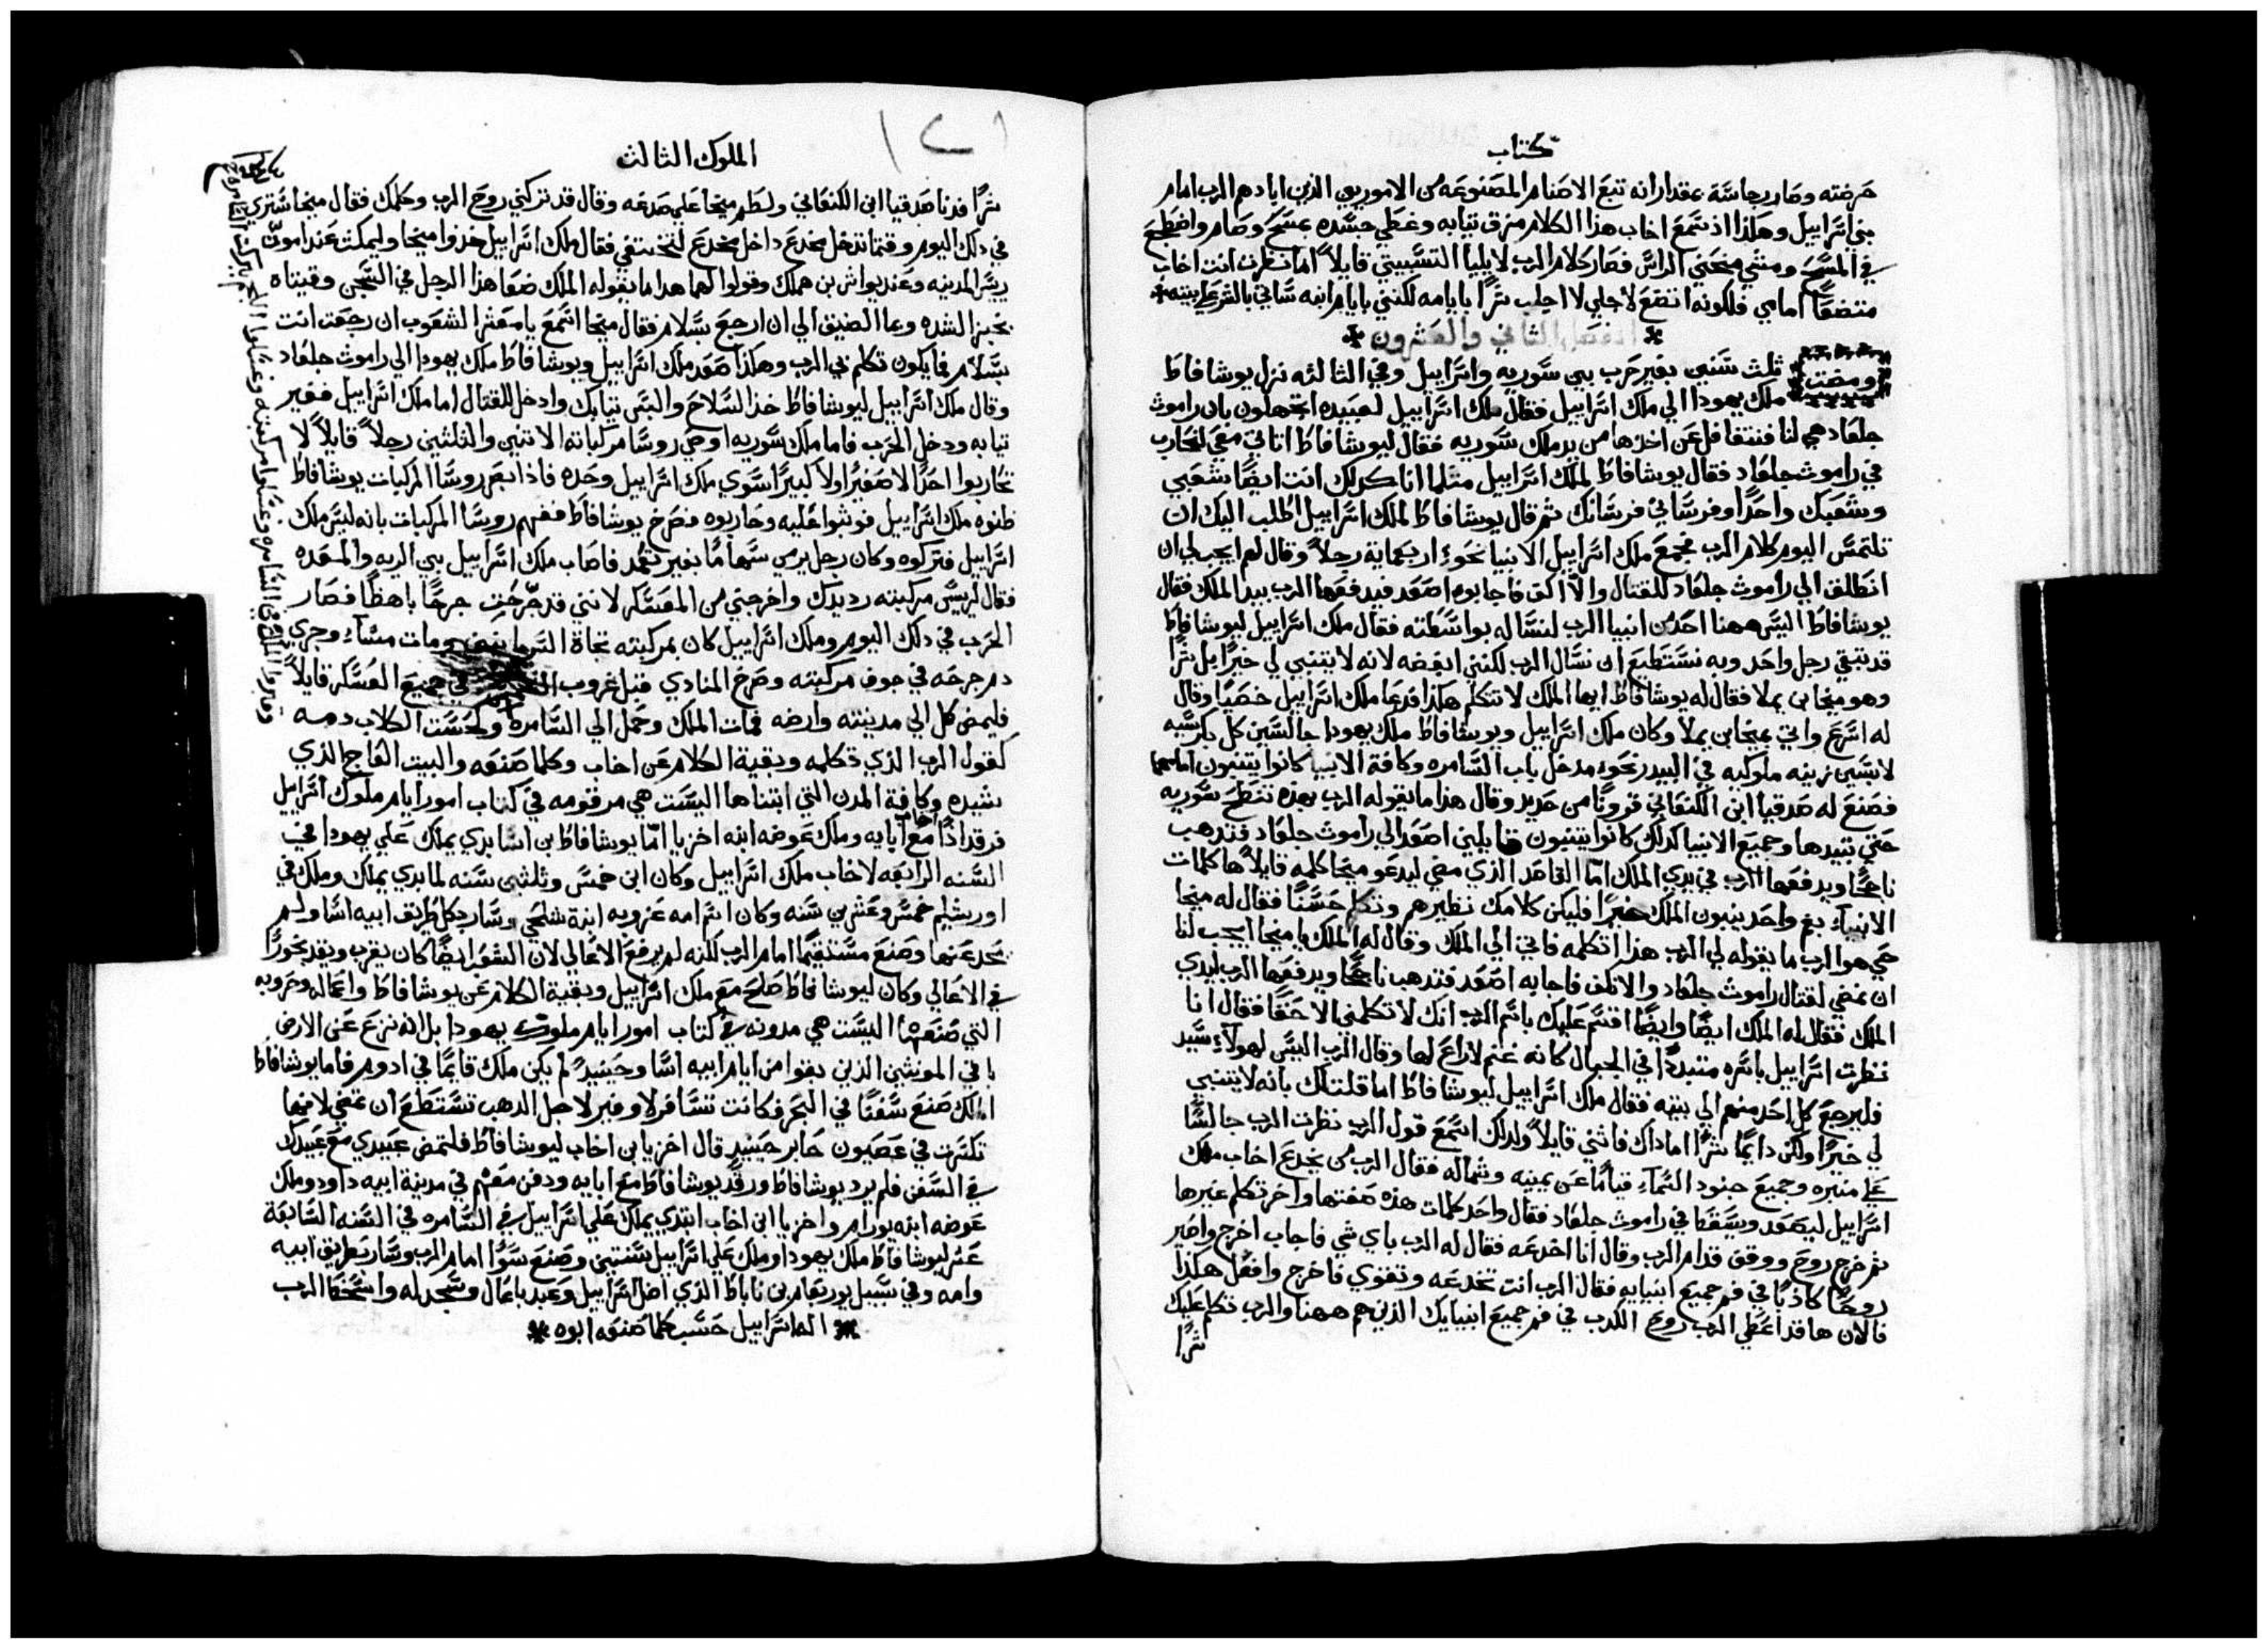 كتاب
حرضته وصار رجاسة بمقدار انه تبع الاصنام المصنوعه من الاموريين الذين ابادهم الرب امام
بني اسراييل وهكذا اذ سمع اخاب هذا الكلام مزق تيابه وغطي جسده بمسح وصام واضطجع
في المسح ومشي منحني الراس فصار كلام الرب لايليا التسبيتي قايلاً اما نظرت انت اخاب
متضعًا امامي فلكونه اتضع لاجلي لا اجلب شرًا بايامه لكنني بايام ابنه ساتي بالشر علي بيته
الفصل الثاني والعشرون
ومضت ثلث سنين بغير حرب بين سوريه واسراييل وفي الثالثه نزل يوشافاط
ملك يهودا الي ملك اسراييل فقال ملك اسراييل لعبيده اتجهلون بان راموث
جلعاد هي لنا فنتغافل عن اخذها من يد ملك سوريه فقال ليوشافاط اتاتي معي لنحارب
في راموث جلعاد فقال يوشافاط لملك اسراييل مثلما انا كذلك انت ايضًا شعبي
وشعبك واحدًا وفرساني فرسانك ثم قال يوشافاط لملك اسراييل اطلب اليك ان
تلتمس اليوم كلام الرب فجمع ملك اسراييل الانبيا نحو اربعماية رجلاً وقال لهم ايجب لي ان
انطلق الي راموث جلعاد للقتال والا اكف فاجابوه اصعد فيدفعها الرب بيد الملك فقال
يوشافاط اليس ههنا احد من انبيا الرب لنسال بواسطته فقال ملك اسراييل ليوشافاط
قد تبقي رجل واحد وبه نستطيع ان نسال الرب لكنني ابغضه لانه لا يتنبي لي خيرًا بل شرًا
وهو ميخا بن يملا فقال له يوشافاط ايها الملك لا تتكلم هكذا فدعا ملك اسراييل خصيًا وقال
له اسرع واتي بميخا بن يملا وكان ملك اسراييل ويوشافاط ملك يهودا جالسين كل بكرسيه
لابسين بزينه ملوكيه في البيدر نحو مدخل باب السامره وكافة الانبيا كانوا يتنبون امامهما
فصنع له صدقيا ابن الكنعاني قرونًا من حديد وقال هذا ما يقوله الرب بهذه تنطح سوريه
حتي تبيدها وجميع الانبيا كذلك كانوا يتنبون قايلين اصعد الي راموث جلعاد فتذهب
ناجحًا ويدفعها الرب في يدي الملك امّا القاصد الذي مضي ليدعو ميخا كلمه قايلاً ها كلمات
الانبياء بفم واحد ينبون الملك خيرًا فليكن كلامك نظيرهم وتكلم حسنًا فقال له ميخا
حي هو الرب ما يقوله لي الرب هذا اتكلمه فاتي الي الملك وقال له الملك يا ميخا ايجب لنا
ان نمضي لقتال راموث جلعاد والا نكف فاجابه اصعد فتذهب ناجحًا ويدفعها الرب ليدي
الملك فقال له الملك ايضًا وايضًا اقسم عليك باسم الرب انك لا تكلمني الا حقًا فقال انا
نظرت اسراييل باسره متبددًا في الجبال كانه غنم لا راع لها وقال الرب اليس لهولاء سيد
فليرجع كل احد منهم الي بيته فقال ملك اسراييل ليوشافاط اما قلت لك بانه لا يتنبي
لي خيرًا ولكن دايمًا شرًا اما ذاك فاثني قايلاً ولذلك اسمع قول الرب نظرت الرب جالسًا
علي منبره وجميع جنود السماء قيامًا عن يمينه وشماله فقال الرب من يخدع اخاب ملك
اسراييل ليصعد ويسقط في راموث جلعاد فقال واحد كلمات هذه صفتها واخر تكلم غيرها
ثم خرج روح ووقف قدام الرب وقال انا اخدعه فقال له الرب باي شي فاجاب اخرج واصير
روحًا كاذبًا في فم جميع انبيايه فقال الرب انت تخدعه وتقوي فاخرج وافعل هكذا
فالان ها قد اعطي الرب روح الكذب في فم جميع انبيايك الذين هم ههنا والرب تكلم عليك
شرًا
الملوك الثالث
شرًا فدنا صدقيا ابن الكنعاني ولطم ميخا علي صدغه وقال قد تركني روح الرب وكلمك فقال ميخا ستري
في ذلك اليوم وقتما تدخل مخدع داخل مخدع لتختفي فقال ملك اسراييل خذوا ميخا وليمكث عند امون
ريس المدينه وعند يواش بن هملك وقولوا لهما هذا ما يقوله الملك ضعا هذا الرجل في السجن وقيتاه
بخبز الشده وبما الضيق الي ان ارجع بسلام فقال ميخا اسمع يا معشر الشعوب ان رجعت انت
بسلام فما يكون تكلم بي الرب وهكذا صعد ملك اسراييل ويوشافاط ملك يهودا الي راموث جلعاد
وقال ملك اسراييل ليوشافاط خذ السلاح والبس تيابك وادخل للقتال اما ملك اسراييل فغير
تيابه ودخل الحرب فاما ملك سوريه اوصي روسا مركباته الاتنين والثلثين رجلاً قايلاً لا
تحاربوا احدًا لا صغيرًا ولا كبيرًا سوي ملك اسراييل وحده فاذ ابصر روسا المركبات يوشافاط
ظنوه ملك اسراييل فوثبوا عليه وحاربوه فصرخ يوشافاط ففهم روسا المركبات بانه ليس ملك
اسراييل فتركوه وكان رجل يرمي سهامًا بغير تعمد فاصاب ملك اسراييل بين الريه والمعده
فقال لريس مركبته رد يدك واخرجني من المعسكر لانني قد جرحت جرحًا باهظًا فصار
الحرب في ذلك اليوم وملك اسراييل كان بمركبته تجاه ومات مساء وجري
دم جرحه في جوف مركبته وصرخ المنادي قبل غروب في جميع العسكر قايلاً
فليمض كل الي مدينته وارضه فمات الملك وحمل الي السامره ولحست الكلاب دمه
كقول الرب الذي تكلمه وبقية الكلام عن اخاب وكلما صنعه والبيت العاج الذي
شيده وكافة المدن التي ابتناها اليست هي مرقومه في كتاب امور ايام ملوك اسراييل
فرقد اذًا اخاب مع ابايه وملك عوضه ابنه اخزيا امّا يوشافاط بن اسا بدي يملك علي يهودا في
السنه الرابعه لاخاب ملك اسراييل وكان ابن خمس وثلثين سنه لما بدي يملك وملك في
اورشليم خمس وعشرين سنه وكان اسم امه عزوبه ابنة شلحي وسار بكل طريق ابيه اسا ولم
يحد عنها وصنع مستقيمًا امام الرب لكنه لم يرفع الاعالي لان الشعب ايضًا كان يقرب ويقد بخورًا
في الاعالي وكان ليوشافاط صلح مع ملك اسراييل وبقية الكلام عن يوشافاط واعماله وحروبه
التي صنعها اليست هي مدونه في كتاب امور ايام ملوك يهودا بل انه نزع عن الارض
باقي المونثين الذين بقوا من ايام ابيه اسا وحينيذٍ لم يكن ملك قايمًا في ادوم فاما يوشافاط
الملك صنع سفنًا في البحر فكانت تسافر لاوفير لاجل الذهب تستطع ان تمضي لانها
تكسرت في عصيون جابر حينيذٍ قال اخزيا بن اخاب ليوشافاط فلتمض عبيدي مع عبيدك
في السفن فلم يرد يوشافاط ورقد يوشافاط مع ابايه ودفن معهم في مدينة ابيه داود وملك
عوضه ابنه يورام واخزيا ابن اخاب ابتدي يملك علي اسراييل في السامره في السنه السابعة
عشر ليوشافاط ملك يهودا وملك علي اسراييل سنتين وصنع سوًا امام الرب وسار بطريق ابيه
وامه وفي سبيل يوربعام بن ناباط الذي اضل اسراييل وعبد باعال وسجد له واسخط الرب
اله اسراييل حسب كلما صنعه ابوه
وقبروا الملك في السامره وغسلوا مركبته وغسلوا اللجم ببركة السامره